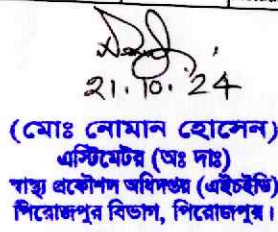 21.10.'24
(মোঃ নোমান হোসেন)
এস্টিমেটর (অঃ দাঃ)
স্বাস্থ্য প্রকৌশল অধিদপ্তর (এইচইডি)
পিরোজপুর বিভাগ, পিরোজপুর।